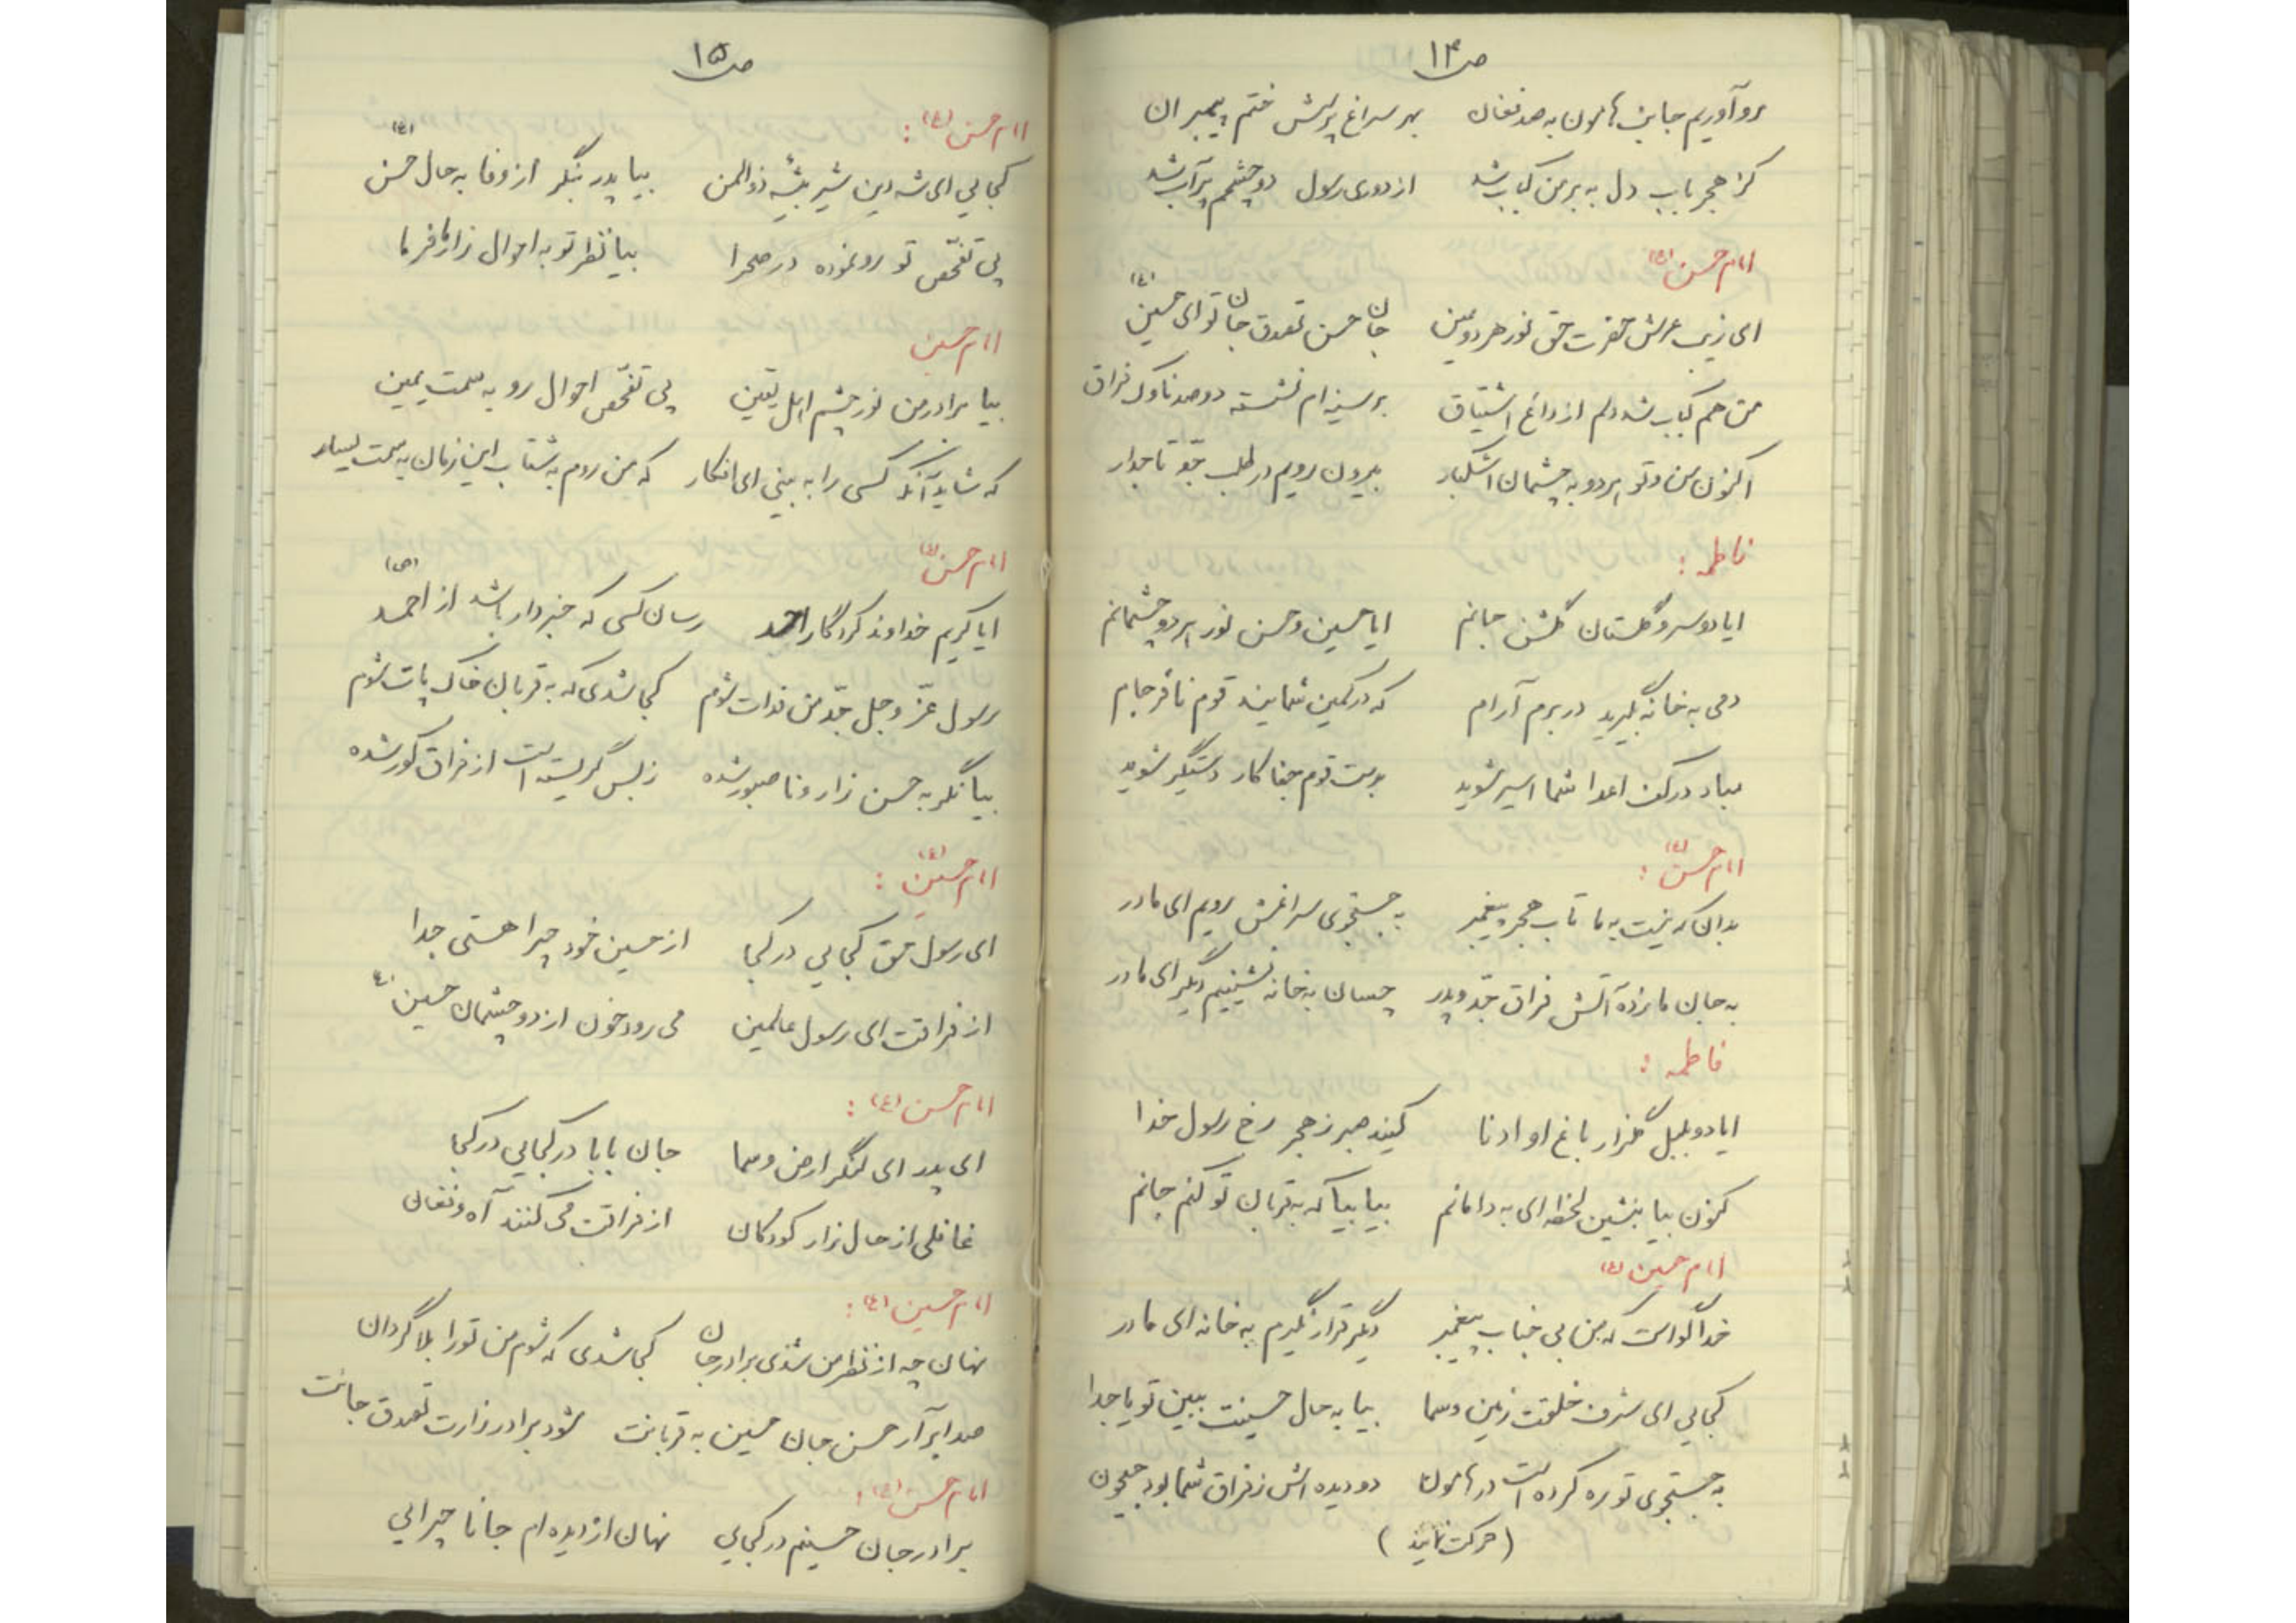 ص۱۴
رو آوریم جانب هامون به صد فغان    بهر سراغ پرسش ختم پیمبران
کز هجر باب دل به بر من کباب شد    از دوری رسول دو چشمم پر آب شد
امام حسن (ع)
ای زیب عرش حضرت حق نور هر دو عین    جان حسن تصدق جان تو ای حسین (ع)
من هم کباب شد دلم از داغ اشتیاق    بر سینه ام نشسته دو صد ناوک فراق
اکنون من و تو هر دو به چشمان اشکبار    بیرون رویم در طلب جدّ تاجدار
فاطمه :
ایا دو سرو گلستان گلشن جانم    ایا حسین و حسن نور هر دو چشمانم
دمی به خانه بگیرید در برم آرام    که در کمین شمایند قوم نافرجام
مباد در کف اعدا شما اسیر شوید    بدست قوم جفا کار دستگیر شوید
امام حسن (ع) :
بدان که نیست به ما تاب هجر پیغمبر    به جستجوی سراغش رویم ای مادر
به جان ما زده آتش فراق جدّ و پدر    چسان به خانه نشینیم دگر ای مادر
فاطمه :
ایا دو بلبل گلزار باغ او ادنا    کنید صبر ز هجر رخ رسول خدا
کنون بیا بنشین لحظه ای به دامانم    بیا بیا که به قربان تو کنم جانم
امام حسین (ع)
خدا گواست که من بی جناب پیغمبر    دگر قرار نگیرم به خانه ای مادر
کجایی ای شرف خلقت زمین و سما    بیا به حال حسینت ببین تو یا جدا
به جستجوی تو ره کرده است در هامون    دو دیده اش ز فراق شما بود جیحون
(حرکت نمایند)
ص۱۵
امام حسن (ع) :
کجایی ای شه دین شیر بیشه ذوالمن    بیا پدر بنگر از وفا به حال حسن (ع)
پی تفحّص تو رو نموده در صحرا    بیا نظر تو به احوال زار ما فرما
امام حسین
بیا برادر من نور چشم اهل یقین    پی تفحّص احوال رو به سمت یمین
که شاید آنکه کسی را به بینی ای افکار    که من روم به شتاب این زمان به سمت یسار
امام حسن (ع)
ایا کریم خداوند کردگار احد    رسان کسی که خبردار باشد از احمد (ص)
رسول عزّ و جل جدّ من فدات شوم    کجا شدی که به قربان خاک پات شوم
بیا نگر به حسن زار و ناصبور شده    ز بس گریسته است از فراق کور شده
امام حسین (ع) :
ای رسول حق کجایی در کجا    از حسین خود چرا هستی جدا
از فراقت ای رسول عالمین    می رود خون از دو چشمان حسین ع
امام حسن (ع) :
ای پدر ای لنگر ارض و سما    جان بابا در کجایی در کجا
غافلی از حال زار کودکان    از فراقت می کنند آه و فغان
امام حسین (ع) :
نهان چه از نظر من شدی برادر جان    کجا شدی که شوم من تو را بلا گردان
صدا برآر حسن جان حسین به قربانت    شود برادر زارت تصدق جانت
امام حسن (ع) :
برادر جان حسینم در کجایی    نهان از دیده ام جانا چرایی